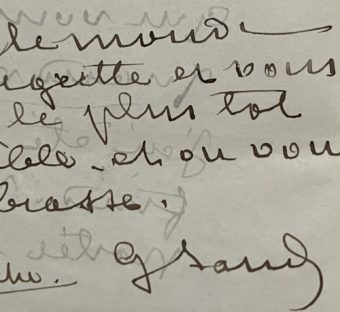 le monde
egrette et vous
le plus tot
ible - et on vou
brasse.
G Sand